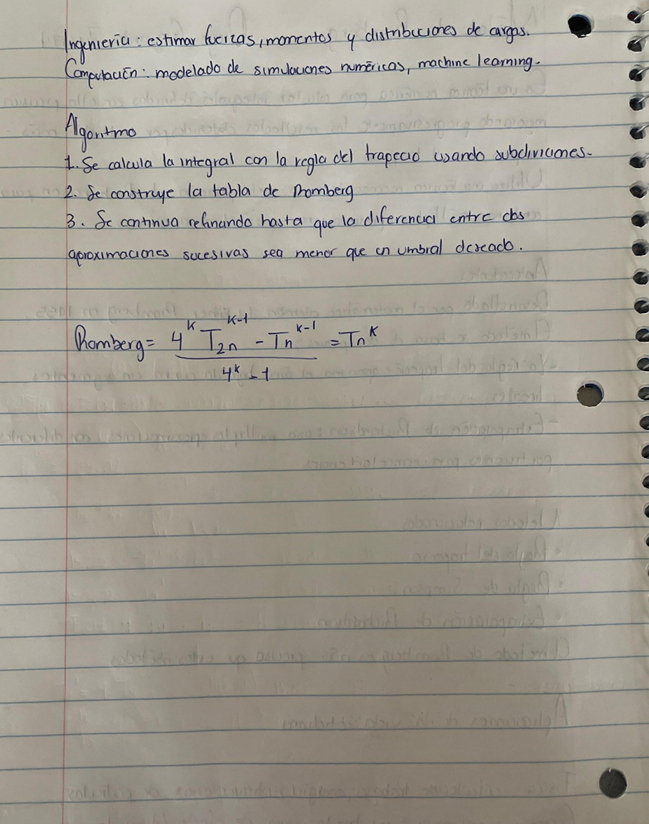 Ingeniería: estimar fuerzas, momentos y distribuciones de cargas.
Computación: modelado de simulaciones numéricas, machine learning.
Algoritmo
1. Se calcula la integral con la regla del trapecio usando subdiviciones.
2. Se construye la tabla de Romberg
3. Se continua refinando hasta que la diferencia entre dos
aproximaciones sucesivas sea menor que un umbral deseado.
Romberg = (4^k T_{2n}^{k-1} - T_n^{k-1}) / (4^k - 1) = T_n^k